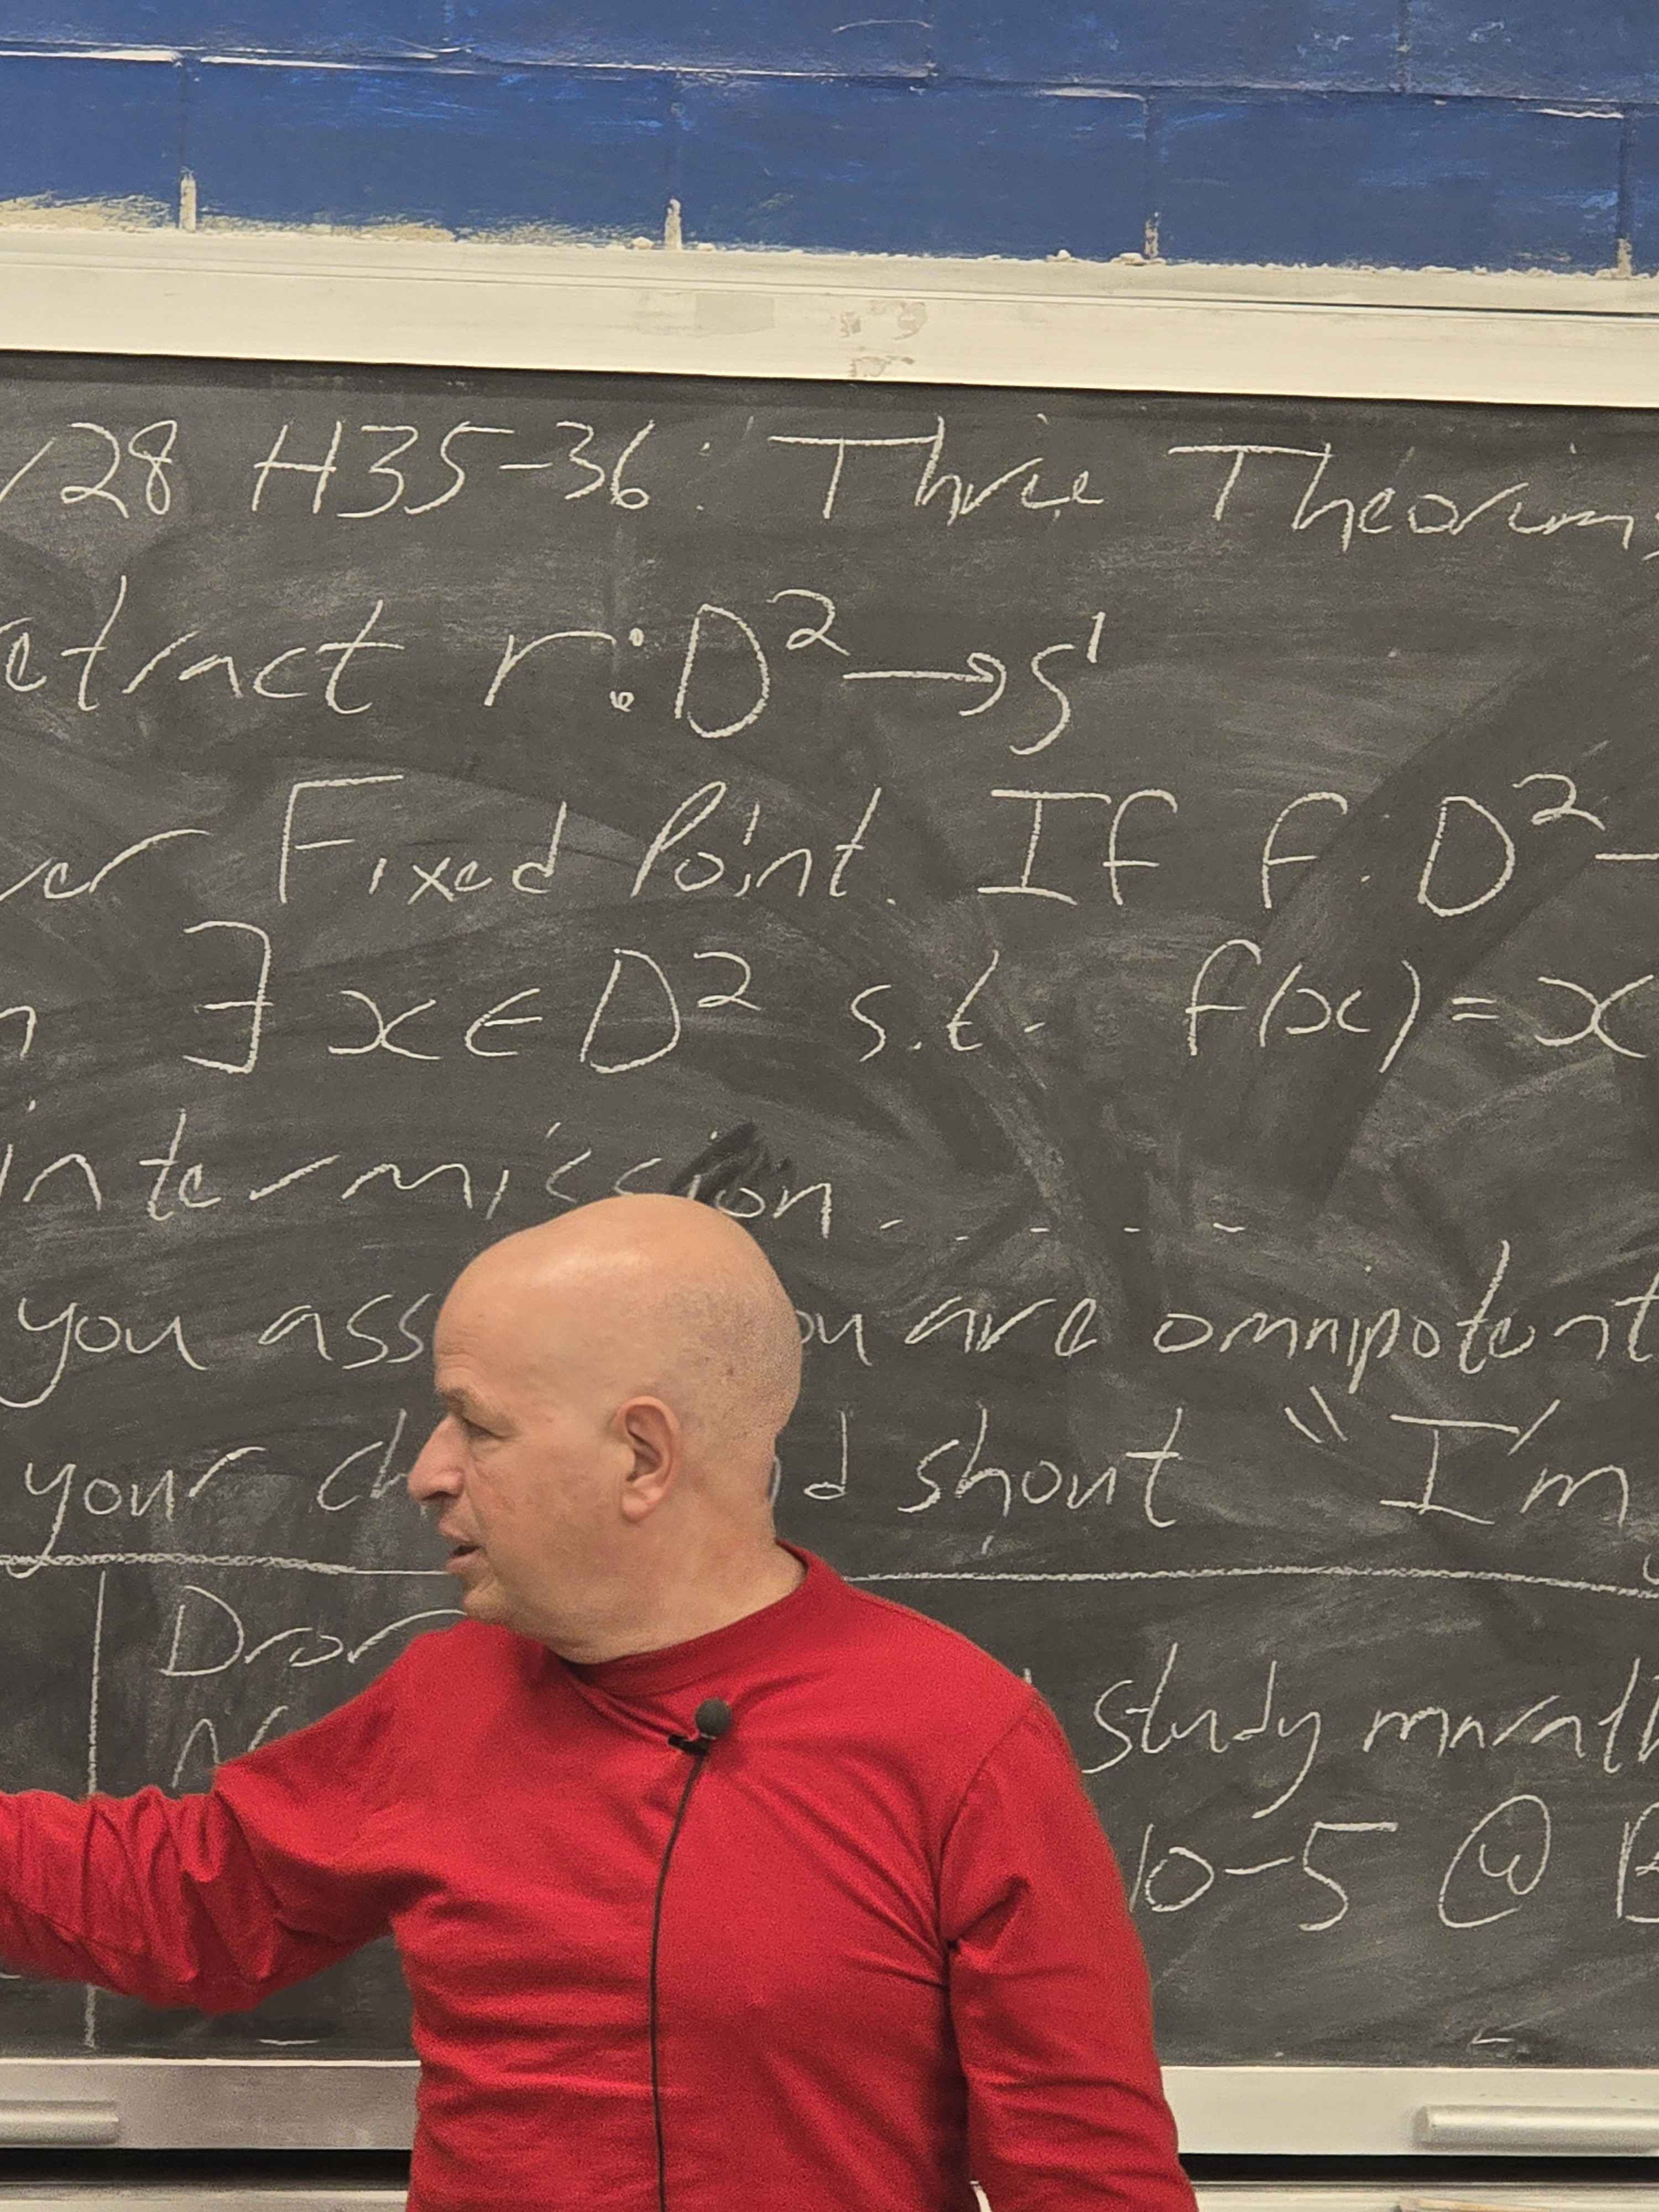 /28 H35-36: Three Theorems
etract r: D² → S¹
er Fixed Point. If f: D² →
n ∃ x ∈ D² s.t. f(x) = x
intermission.....
you ass ou are omnipotent
your ch d shout "I'm
Dror study marath
10-5 @